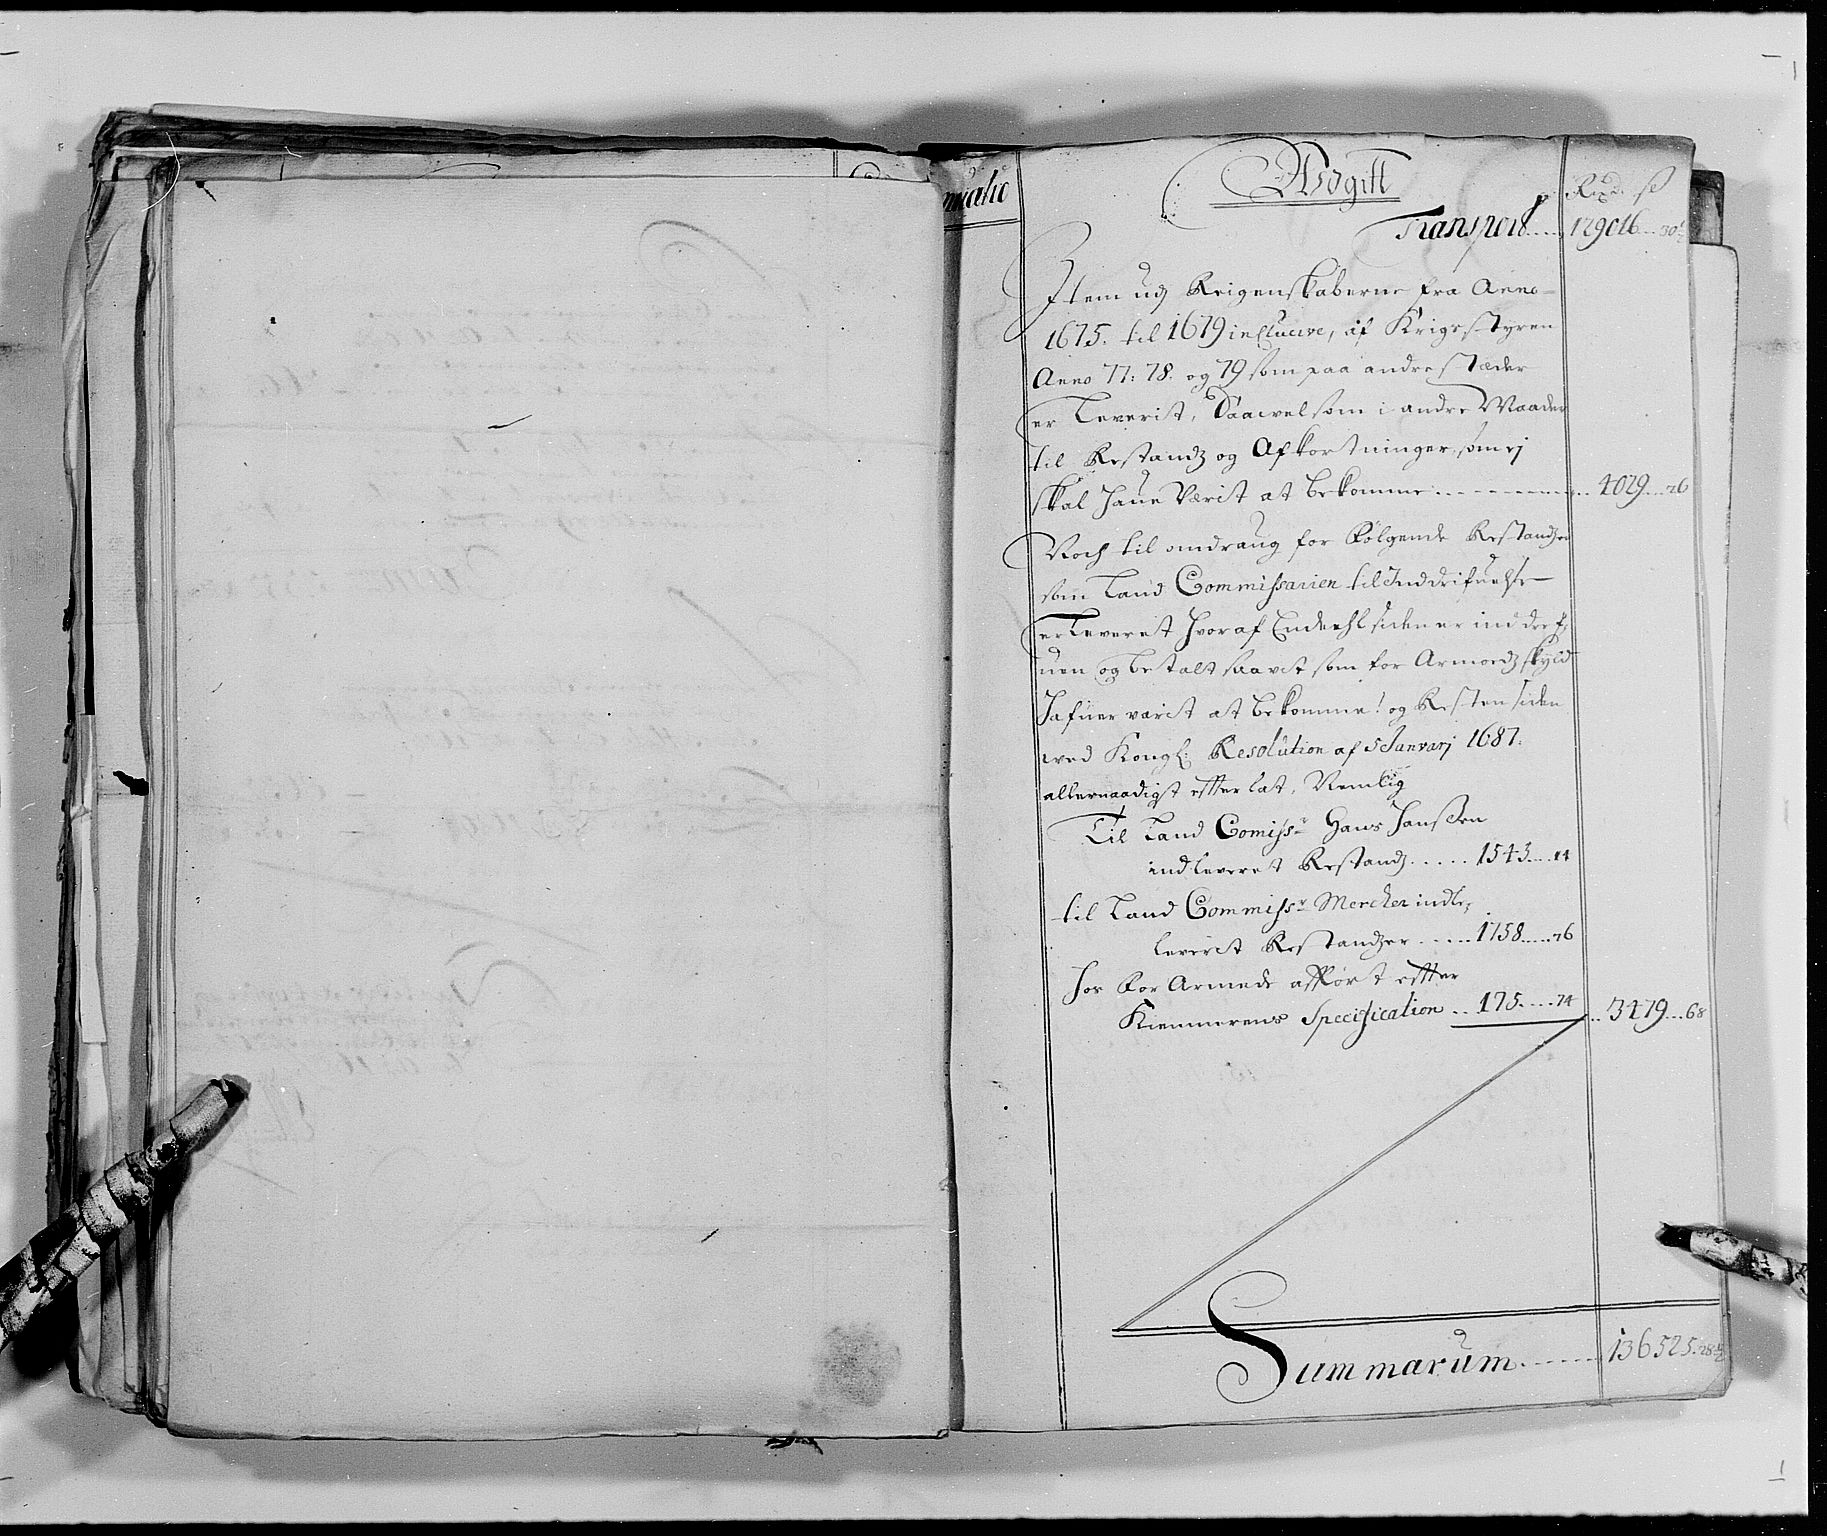 Udgifft
Rixd. ſſ
Transport..... 129016...30½
Item udj Reigenskaberne fra Anno
1675. til 1679 inclucive, af Krigsstyren
Anno 77: 78. og 79 som paa andre stæder
er Leverit, Saavel som i andre Maader
til Restandz og Afkortninger, som ej
skal hauе Værit at bekomme............. 4029...26
Noch til omdraug for følgende Restandzer
som Land Commissarien til Inddrifuelse
er Leveret hvoraf Endeehl siden er inddref,
uen og betalt saavit som for Armodz skyld
hafuer varit at bekomme! og Resten siden
ved Kongl: Resolution af 5 Januarj 1687:
allernaadigst effterlat, Nemlig
Til Land Comissr Hans Hanssen
indleveret Restandz..... 1543....14
til Land Commissr Mercker indle,
leverit Restandzer..... 1758.....76
for For Armede affført effter
Kiemnerens Specification... 175.....74 .. 3479...68
Summarum....... 136525.28½